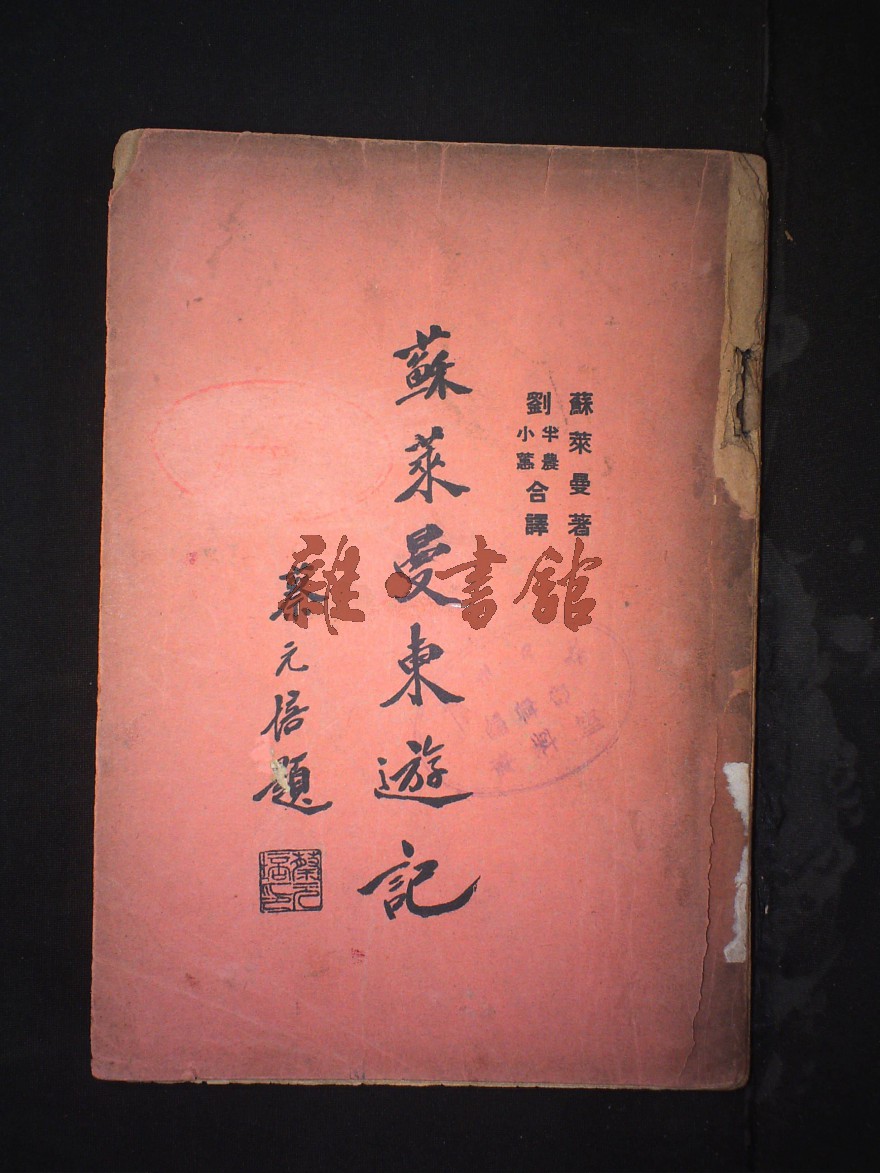 蘇萊曼著
劉半農小蕙合譯
蘇萊曼東遊記
蔡元培題
蔡元培印
雜·書館